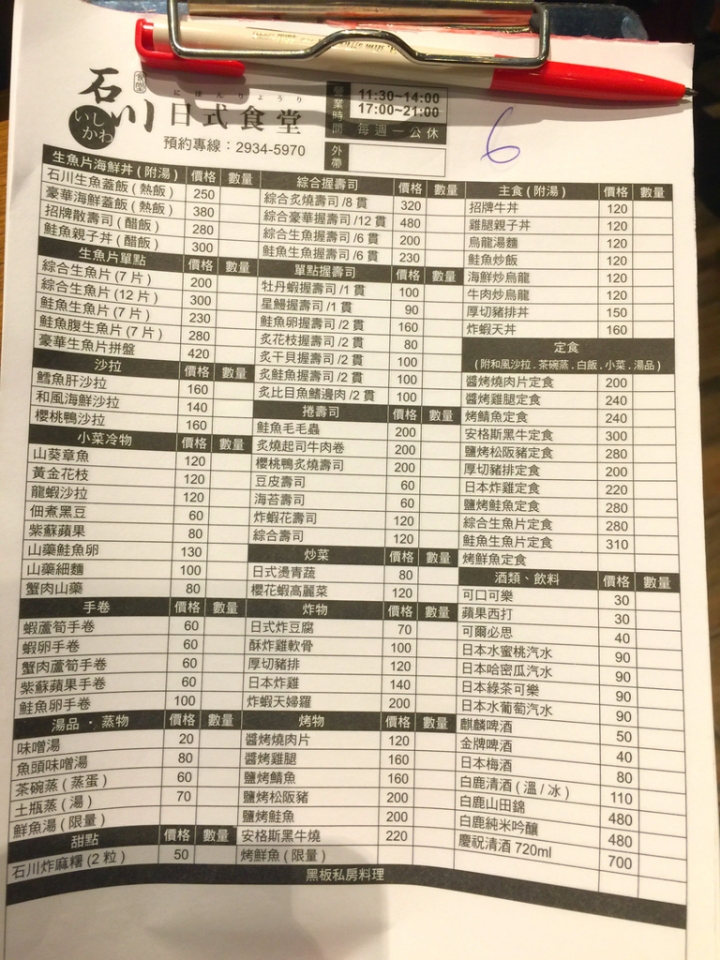 石川 日式食堂
いしかわ
にほんりょうり
預約專線：2934-5970
營業時間 11:30~14:00
17:00~21:00
每週一公休
外帶
6
生魚片海鮮丼(附湯) 價格 數量
石川生魚蓋飯(熱飯) 250
豪華海鮮蓋飯(熱飯) 380
招牌散壽司(醋飯) 280
鮭魚親子丼(醋飯) 300
生魚片單點 價格 數量
綜合生魚片(7片) 200
綜合生魚片(12片) 300
鮭魚生魚片(7片) 230
鮭魚腹生魚片(7片) 280
豪華生魚片拼盤 420
沙拉 價格 數量
鱈魚肝沙拉 160
和風海鮮沙拉 140
櫻桃鴨沙拉 160
小菜冷物 價格 數量
山葵章魚 120
黃金花枝 120
龍蝦沙拉 120
佃煮黑豆 60
紫蘇蘋果 80
山藥鮭魚卵 130
山藥細麵 100
蟹肉山藥 80
手卷 價格 數量
蝦蘆筍手卷 60
蝦卵手卷 60
蟹肉蘆筍手卷 60
紫蘇蘋果手卷 60
鮭魚卵手卷 100
湯品・蒸物 價格 數量
味噌湯 20
魚頭味噌湯 80
茶碗蒸(蒸蛋) 60
土瓶蒸(湯) 70
鮮魚湯(限量)
甜點 價格 數量
石川炸麻糬(2粒) 50
綜合握壽司 價格 數量
綜合炙燒壽司/8貫 320
綜合豪華握壽司/12貫 480
綜合生魚握壽司/6貫 200
鮭魚生魚握壽司/6貫 230
單點握壽司 價格 數量
牡丹蝦握壽司/1貫 100
星鰻握壽司/1貫 90
鮭魚卵握壽司/2貫 160
炙花枝握壽司/2貫 80
炙干貝握壽司/2貫 100
炙鮭魚握壽司/2貫 100
炙比目魚鰭邊肉/2貫 100
捲壽司 價格 數量
鮭魚毛毛蟲 200
炙燒起司牛肉卷 200
櫻桃鴨炙燒壽司 200
豆皮壽司 60
海苔壽司 60
炸蝦花壽司 120
綜合壽司 120
炒菜 價格 數量
日式燙青蔬 80
櫻花蝦高麗菜 120
炸物 價格 數量
日式炸豆腐 70
酥炸雞軟骨 100
厚切豬排 120
日本炸雞 140
炸蝦天婦羅 200
烤物 價格 數量
醬烤燒肉片 120
醬烤雞腿 160
鹽烤鯖魚 160
鹽烤松阪豬 200
鹽烤鮭魚 200
安格斯黑牛燒 220
烤鮮魚(限量)
主食(附湯) 價格 數量
招牌牛丼 120
雞腿親子丼 120
烏龍湯麵 120
鮭魚炒飯 120
海鮮炒烏龍 120
牛肉炒烏龍 120
厚切豬排丼 150
炸蝦天丼 160
定食
(附和風沙拉.茶碗蒸.白飯.小菜.湯品)
醬烤燒肉片定食 200
醬烤雞腿定食 240
烤鯖魚定食 240
安格斯黑牛定食 300
鹽烤松阪豬定食 280
厚切豬排定食 200
日本炸雞定食 220
鹽烤鮭魚定食 280
綜合生魚片定食 280
鮭魚生魚片定食 310
烤鮮魚定食
酒類、飲料 價格 數量
可口可樂 30
蘋果西打 30
可爾必思 40
日本水蜜桃汽水 90
日本哈密瓜汽水 90
日本綠茶可樂 90
日本水葡萄汽水 90
麒麟啤酒 50
金牌啤酒 40
日本梅酒 80
白鹿清酒(溫/冰) 110
白鹿山田錦 480
白鹿純米吟釀 480
慶祝清酒 720ml 700
黑板私房料理